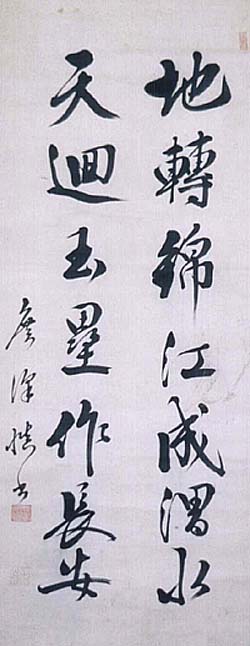 地轉錦江成渭水
天迴玉壘作長安
廣澤謹書